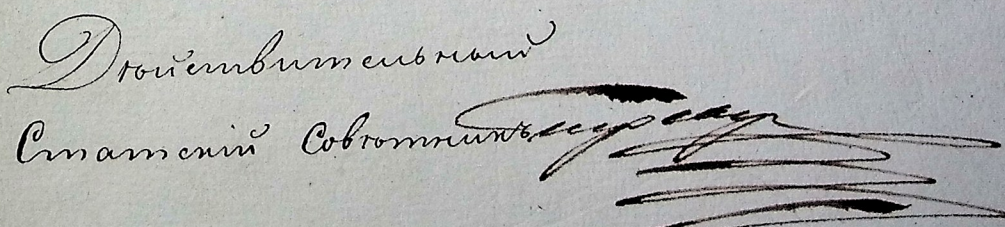 Дѣйствительный
Статскій Совѣтникъ